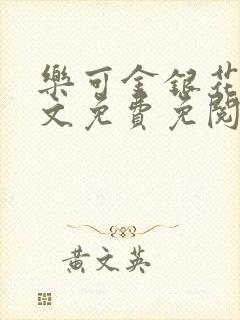 樂可金銀花
文免費免閱
黃文英